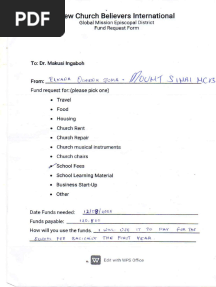 PDF
New Church Believers International
Global Mission Episcopal District
Fund Request Form
To: Dr. Makusi Ingaboh
From: MOUNT SINAI NCB
Fund request for: (please pick one)
• Travel
• Food
• Housing
• Church Rent
• Church Repair
• Church musical instruments
• Church chairs
• School Fees
• School Learning Material
• Business Start-Up
• Other
Date Funds needed:
Funds payable:
How will you use the funds. I WILL USE IT TO PAY FOR THE
FOR THE FIRST YEAR
Edit with WPS Office